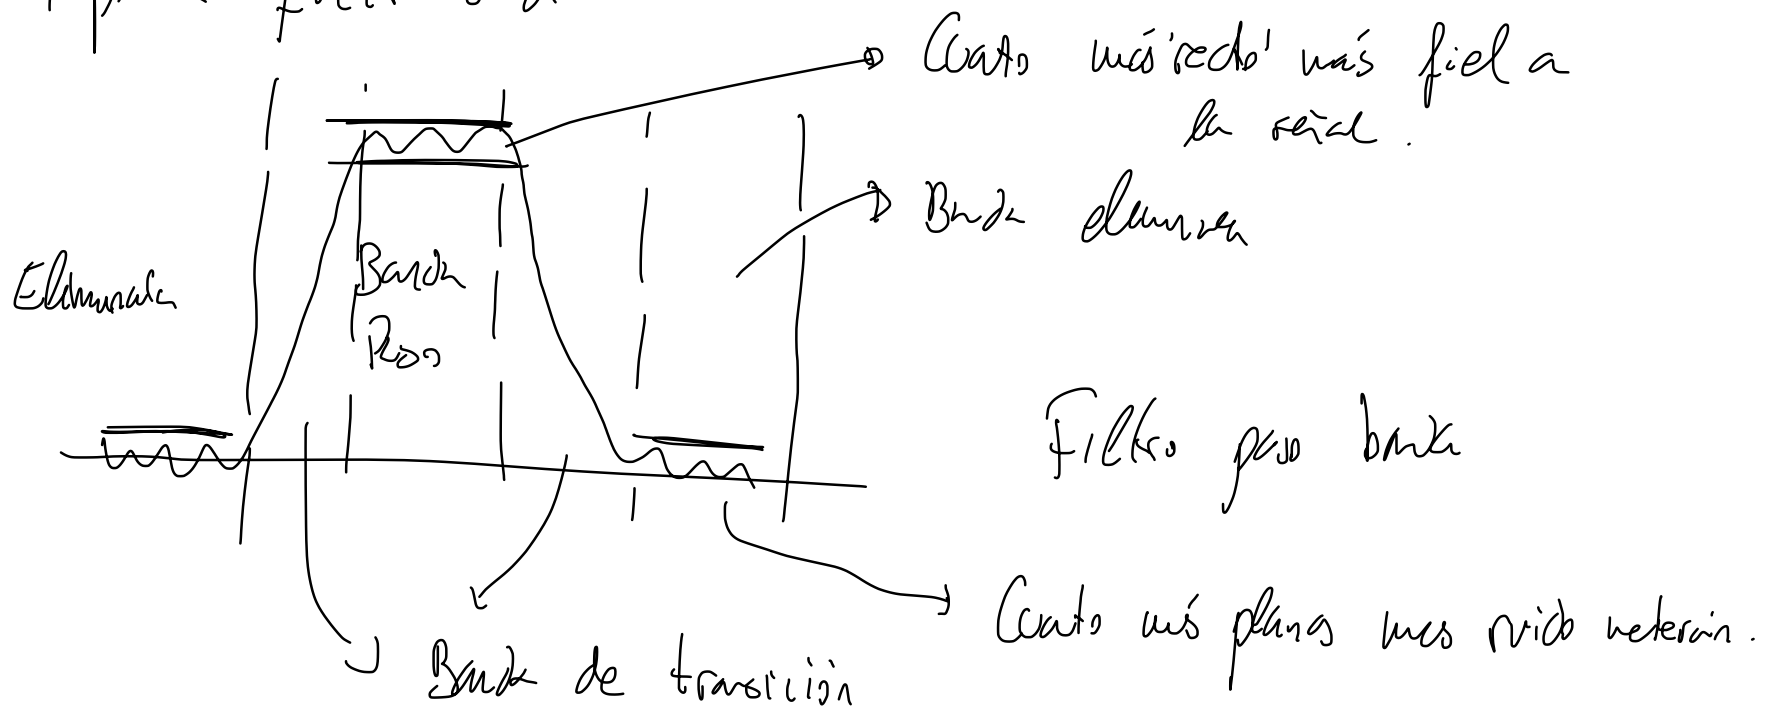 Cuato más 'recto' más fiel a
la señal.
Banda
Banda
Paso
Filtro paso banda
Cuato más planas mas ruido meterán.
Banda de transición